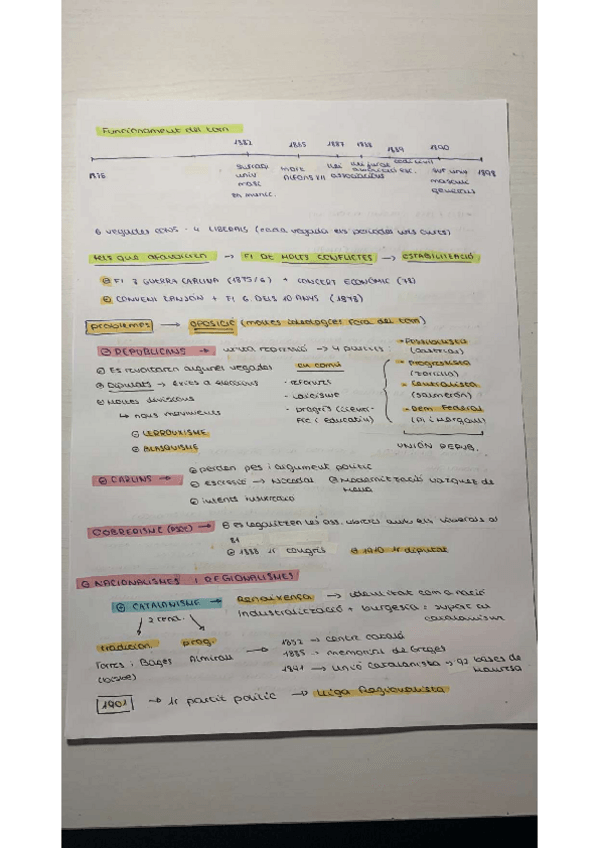 Funcionament del torn
1882 1885 1887 1888 1889 1890
1876 sufragi univ masc en munic. mort Alfons XII llei associacions codi civil suf univ masculí 1898
6 vegades CONS - 4 LIBERALS (cada vegada els períodes més curts)
fets que afavorien → FI DE MOLTS CONFLICTES → ESTABILITZACIÓ
FI 3 GUERRA CARLINA (1875/6) + CONCERT ECONÒMIC (78)
CONVENI ZANJÓN + FI G. DELS 10 ANYS (1878)
problemes → OPOSICIÓ (moltes ideologies fora del torn)
REPUBLICANS → molta repressió → 4 partits:
Es revoltaren algunes vegades
Diputats → èxits a eleccions
Moltes divisions
↳ nous moviments
LERROUXISME
BLASQUISME
en comú
- reformes
- laicisme
- progrés (científic i educatiu)
- Possibilista (Castelar)
- Progressista (Zorrilla)
- Centralista (Salmerón)
- Dem Federal (Pi i Margall)
UNIÓN REPUB.
CARLINS → perden pes i argument polític
escissió → Nocedal Modernització Vázquez de Mella
intents insurrecció
OBRERISME (PSOE) → es legalitzen les ass. obreres amb els liberals al 81
1888 1r congrés 1910 1r diputat
NACIONALISMES I REGIONALISMES
CATALANISME → Renaixença → identitat com a nació
Industrialització + burgesia: suport al catalanisme
2 tend.
tradicion. prog.
Torres i Bages Almirall → 1882 → centre català
1885 → memorial de Greuges
→ Unió catalanista → 92 bases de Manresa
1901 → 1r partit polític → Lliga Regionalista